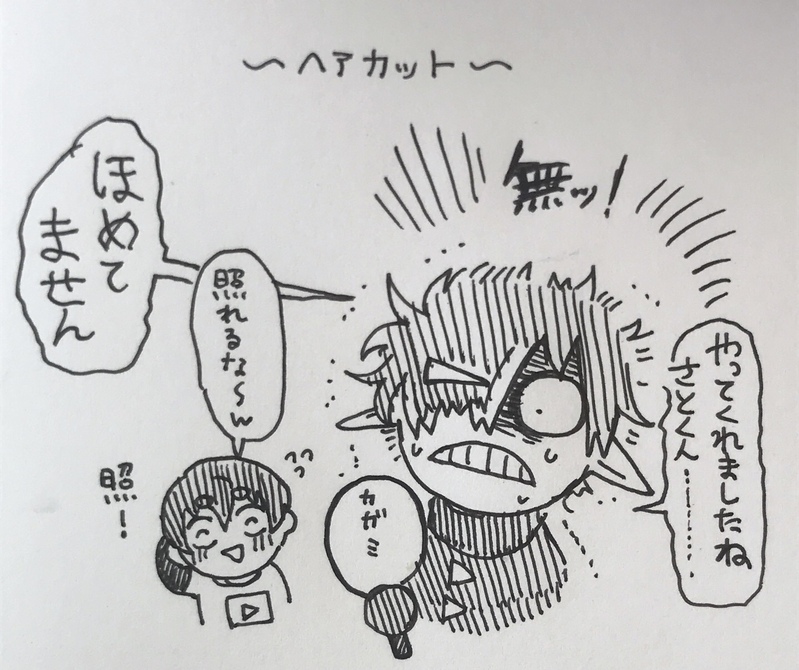 〜ヘアカット〜
無ッ!
やってくれましたね
さとくん………
ほめて
ません
照れるな〜w
照!
カガミ